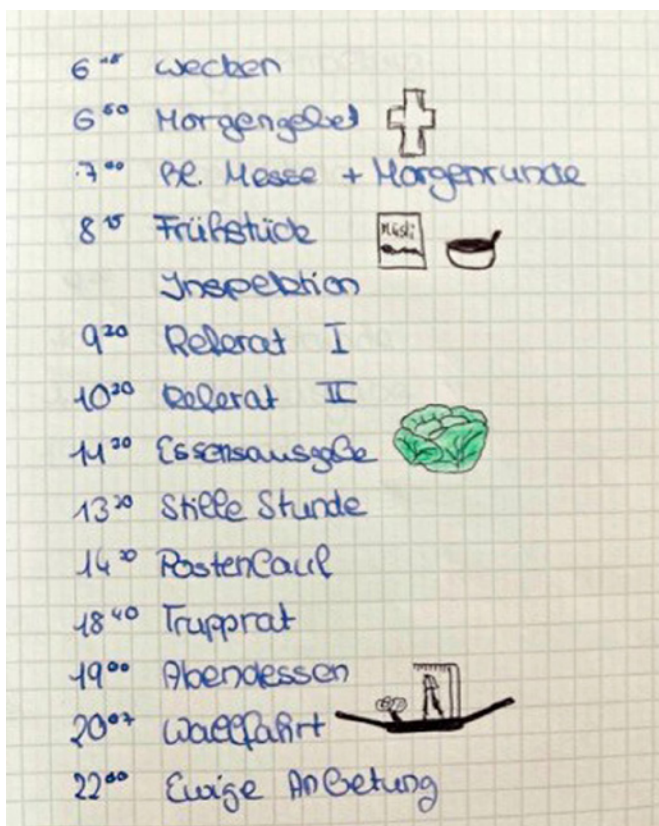 6¹⁵ Wecken
6⁵⁰ Morgengebet
7⁰⁰ Hl. Messe + Morgenrunde
8¹⁵ Frühstück Müsli
Inspektion
9²⁰ Referat I
10²⁰ Referat II
11²⁰ Essensausgabe
13²⁰ Stille Stunde
14²⁰ Postenlauf
18⁴⁰ Trupprat
19⁰⁰ Abendessen
20⁰⁷ Wallfahrt
22⁰⁰ Ewige Anbetung